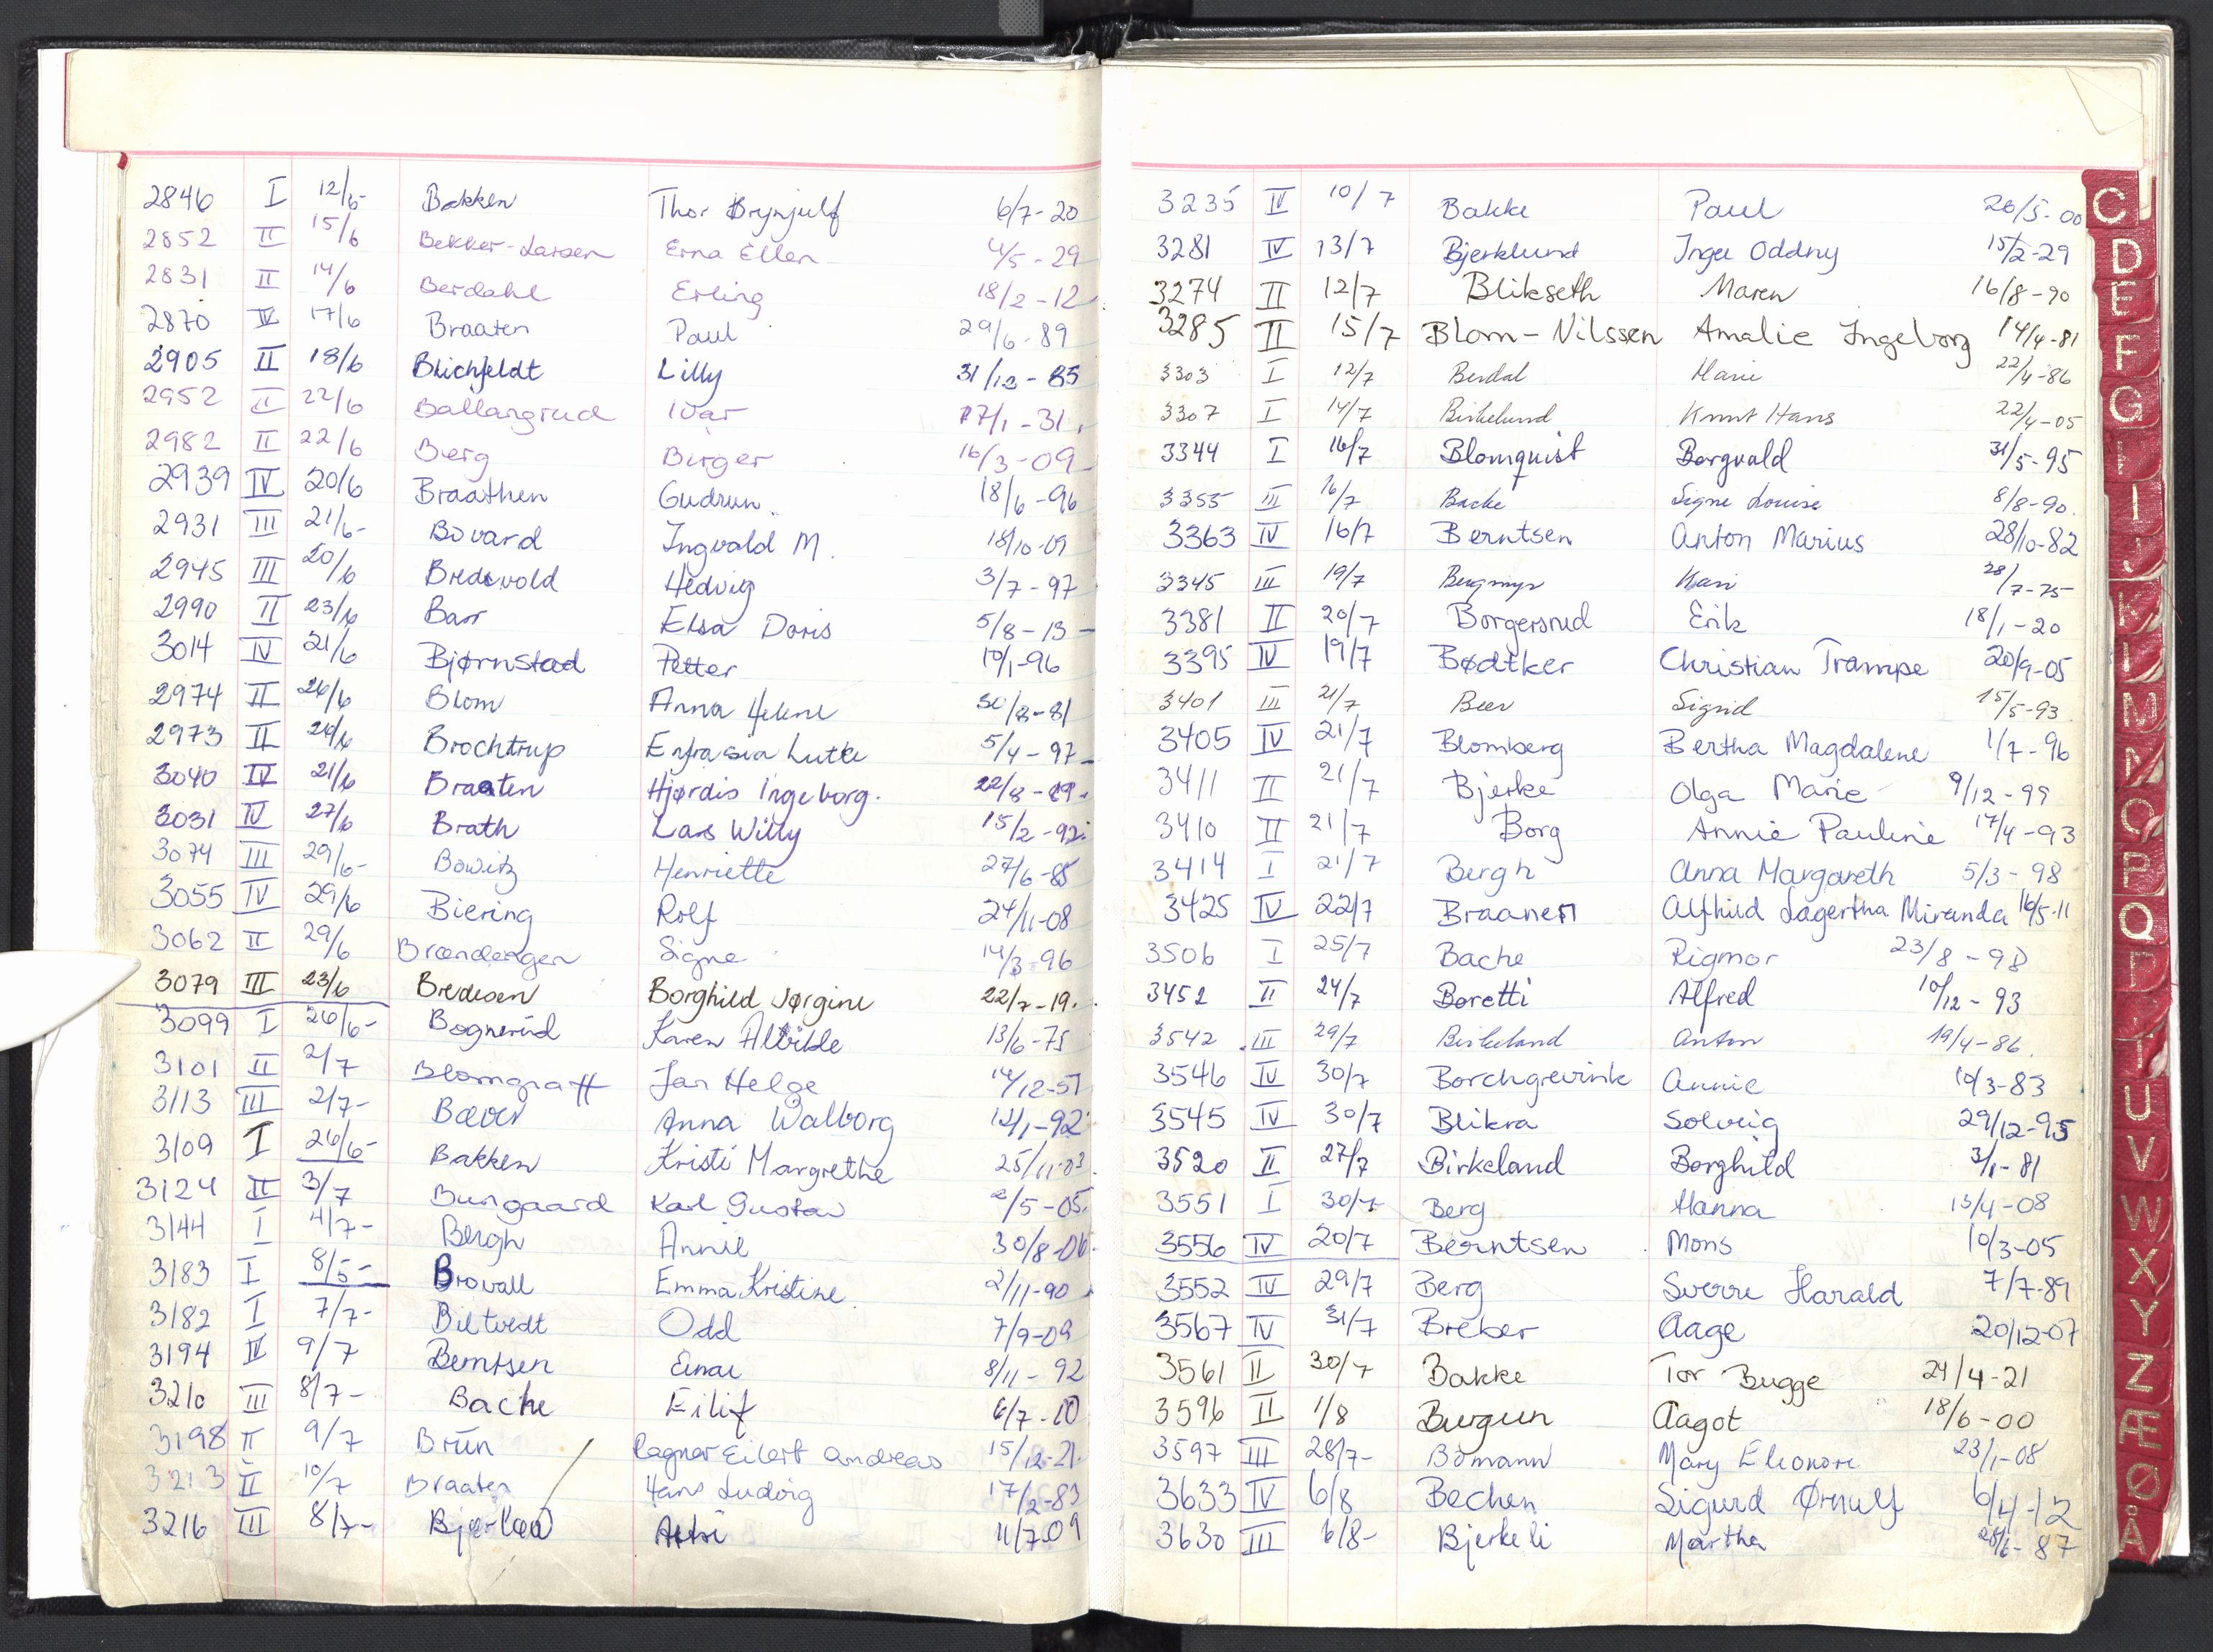 2846 I 12/6- Bakken Thor Brynjulf 6/7-20
2852 II 15/6 Bekker-Larsen Erna Ellen 4/5-29
2831 II 14/6 Berdahl Erling 18/2-12
2870 IV 17/6 Braaten Paul 29/6-89
2905 II 18/6 Blichfeldt Lilly 31/12-85
2952 II 22/6 Ballangrud Ivar 17/1-31.
2982 II 22/6 Berg Birger 16/3-09
2939 IV 20/6 Braathen Gudrun 18/6-96
2931 III 21/6- Bovard Ingvald M. 18/10-09
2945 III 20/6 Bredevold Hedvig 3/7-97
2990 II 23/6 Barr Elsa Doris 5/8-13
3014 IV 21/6 Bjørnstad Petter 10/1-96
2974 II 26/6 Blom Anna Helene 30/8-81
2973 II 26/6 Brochtrup Lutke 5/4-97
3040 IV 21/6 Braaten Hjørdis Ingeborg.
3031 IV 27/6 Brath Lars Willy 15/2-92
3074 III 29/6- Bowitz Henriette 27/6-85
3055 IV 29/6 Biering Rolf 24/11-08
3062 II 29/6 Brændengen Signe 14/3-96
3079 III 23/6 Bredesen Borghild Jørgine 22/7-19.
3099 I 26/6- Bognerud Karen 13/6-75
3101 II 2/7 Blomgraff Jan Helge 14/12-51
3113 III 2/7- Bæver Anna Walborg 12/1-92
3109 I 26/6- Bakken Kristi Margrethe 25/11-03
3124 II 3/7 Bungaard Karl Gustav 2/5-05
3144 I 4/7- Bergh Annie 30/8-06
3183 I 8/5- Brovall Emma Kristine 2/11-90
3182 I 7/7- Biltvedt Odd 7/9-09
3194 IV 9/7 Berntsen Einar 8/11-92
3210 III 8/7- Bache Eilif 6/7-10
3198 II 9/7 Brün Ragnar Eilert Andreas 15/12-21.
3213 II 10/7 Braaten Hans Ludvig 17/2-83
3216 III 8/7- 11/7-09
3235 II 10/7 Bakke Paul 26/5-00
3281 IV 13/7 Bjerklund Inger Oddny 15/2-29
3274 II 12/7 Blikseth Maren 16/8-90
3285 II 15/7 Blom-Nilssen Amalie Ingeborg 14/4-81
3303 I 12/7 Berdal Marie 22/4-86
3307 I 14/7 Birkelund Knut Hans 22/4-05
3344 I 16/7 Blomquist Borgvald 31/5-95
3355 III 16/7 Backe Signe Louise 8/8-90.
3363 IV 16/7 Berntsen Anton Marius 28/10-82
3345 III 19/7 Bergmyr Kari 28/7-75
3381 II 20/7 Borgersrud Erik 18/1-20
3395 IV 19/7 Bødtker Christian Trampe 20/9-05
3401 III 21/7 Beer Sigrid 15/5-93
3405 IV 21/7 Blomberg Bertha Magdalene 1/7-96
3411 II 21/7 Bjerke Olga Marie 9/12-99
3410 II 21/7 Borg Annie Pauline 17/4-93
3414 I 21/7 Bergh Anna Margareth 5/3-98
3425 IV 22/7 Braanen Alfhild Lagertha Miranda 16/5-11
3506 I 25/7 Bache Rigmor 23/8-98
3452 II 24/7 Boretti Alfred 10/12-93
3542 III 29/7 Birkeland Anton 19/4-86.
3546 IV 30/7 Borchgrevink Annie 10/3-83
3545 IV 30/7 Blikra Solveig 29/12-95
3520 II 27/7 Birkeland Borghild 3/1-81
3551 I 30/7 Berg Hanna 13/4-08
3556 IV 20/7 Berntsen Mons 10/3-05
3552 IV 29/7 Berg Sverre Harald 7/7-89
3567 IV 31/7 Breber Aage 20/12-07
3561 II 30/7 Bakke Tor Bugge 24/4-21
3596 II 1/8 Burgun Aagot 18/6-00
3597 III 28/7- Bömann Mary Eleonore 23/1-08
3633 IV 6/8 Bechen Sigurd Ørnulf 6/4-12
3630 III 6/8- Bjerkeli Martha 28/6-87
C
D
E
F
G
I
J
K
M
N
O
P
Q
U
V
W
X
Y
Z
Æ
Ø
Å